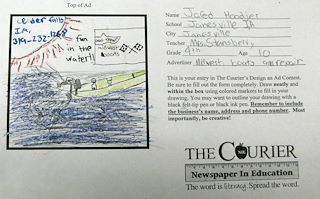 Top of Ad
Ceder falls
IA,
319-232-1268
fun
in the
water!!
boats
Name Jared Hoodjer
School Janesville IA
City Janesville
Teacher Mrs. Stansberry
Grade 4th Age 10
Advertiser Midwest boats and repair
This is your entry in The Courier's Design an Ad Contest.
Be sure to fill out the form completely. Draw neatly and
within the box using colored markers to fill in your
drawing. You may want to outline your drawing with a
black felt-tip pen or black ink pen. Remember to include
the business's name, address and phone number. Most
importantly, be creative!
THE COURIER
Newspaper In Education
The word is literacy. Spread the word.